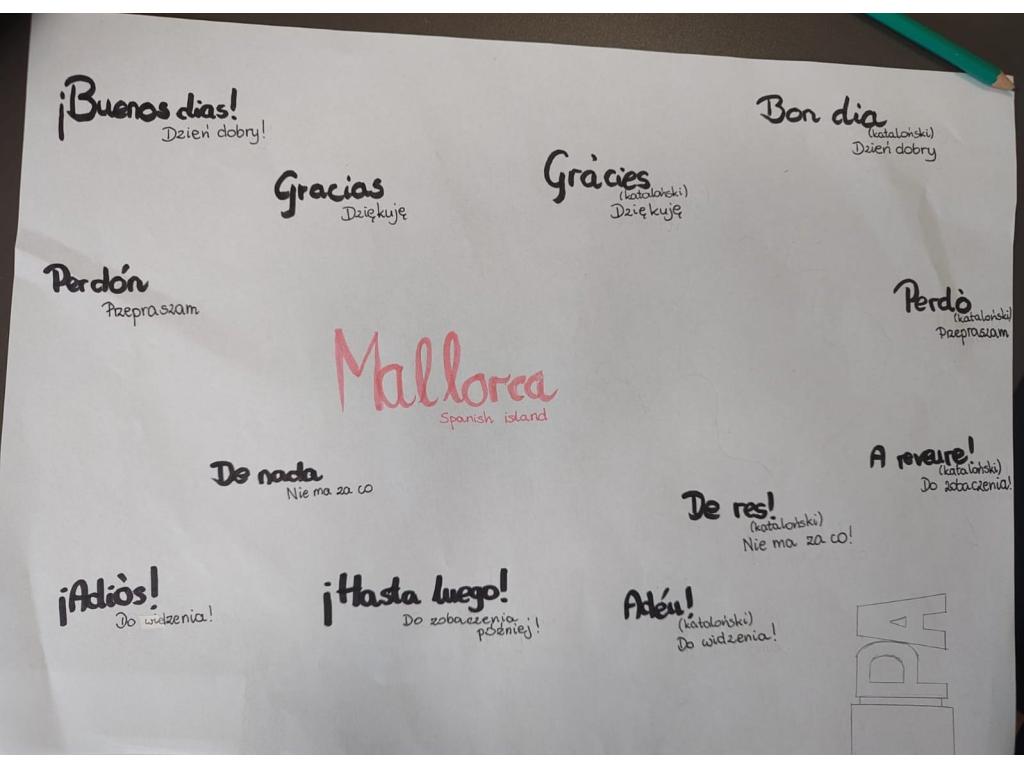 ¡Buenos dias!
Dzień dobry!
Bon dia
(kataloński)
Dzień dobry
Gracias
Dziękuję
Gràcies
(kataloński)
Dziękuję
Perdón
Przepraszam
Perdò
(kataloński)
Przepraszam
Mallorca
Spanish island
De nada
Nie ma za co
A reveure!
(kataloński)
Do zobaczenia!
De res!
(kataloński)
Nie ma za co!
¡Adiòs!
Do widzenia!
¡Hasta luego!
Do zobaczenia
później!
Adéu!
(kataloński)
Do widzenia!
PA